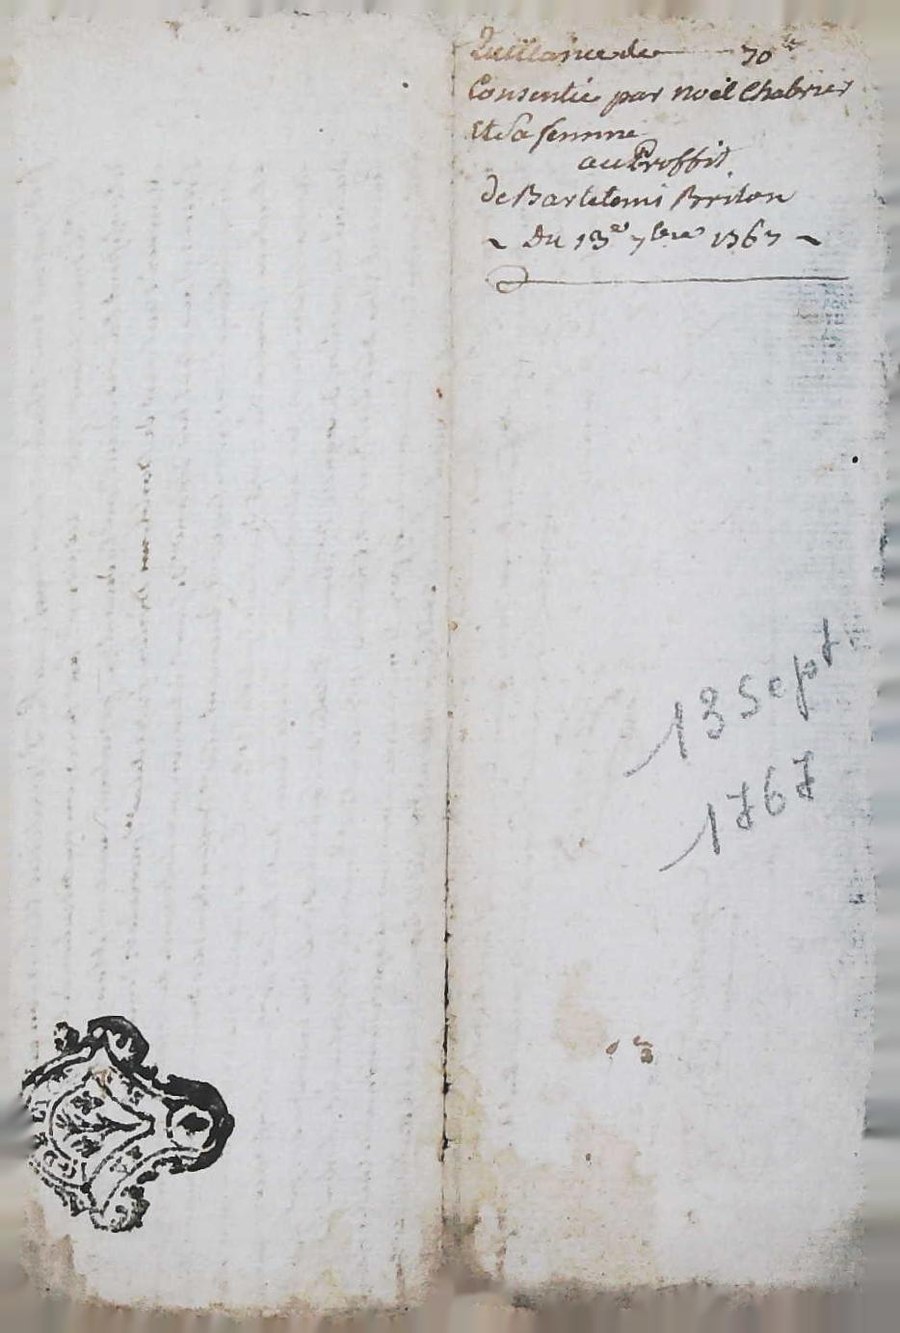 Quittance de — 70 ₶
Consentie par noël Chabrier
Et Sa femme
au Proffit
de Bartelemi Briton
~ Du 13e 7bre 1767 ~
13 Sept
1767